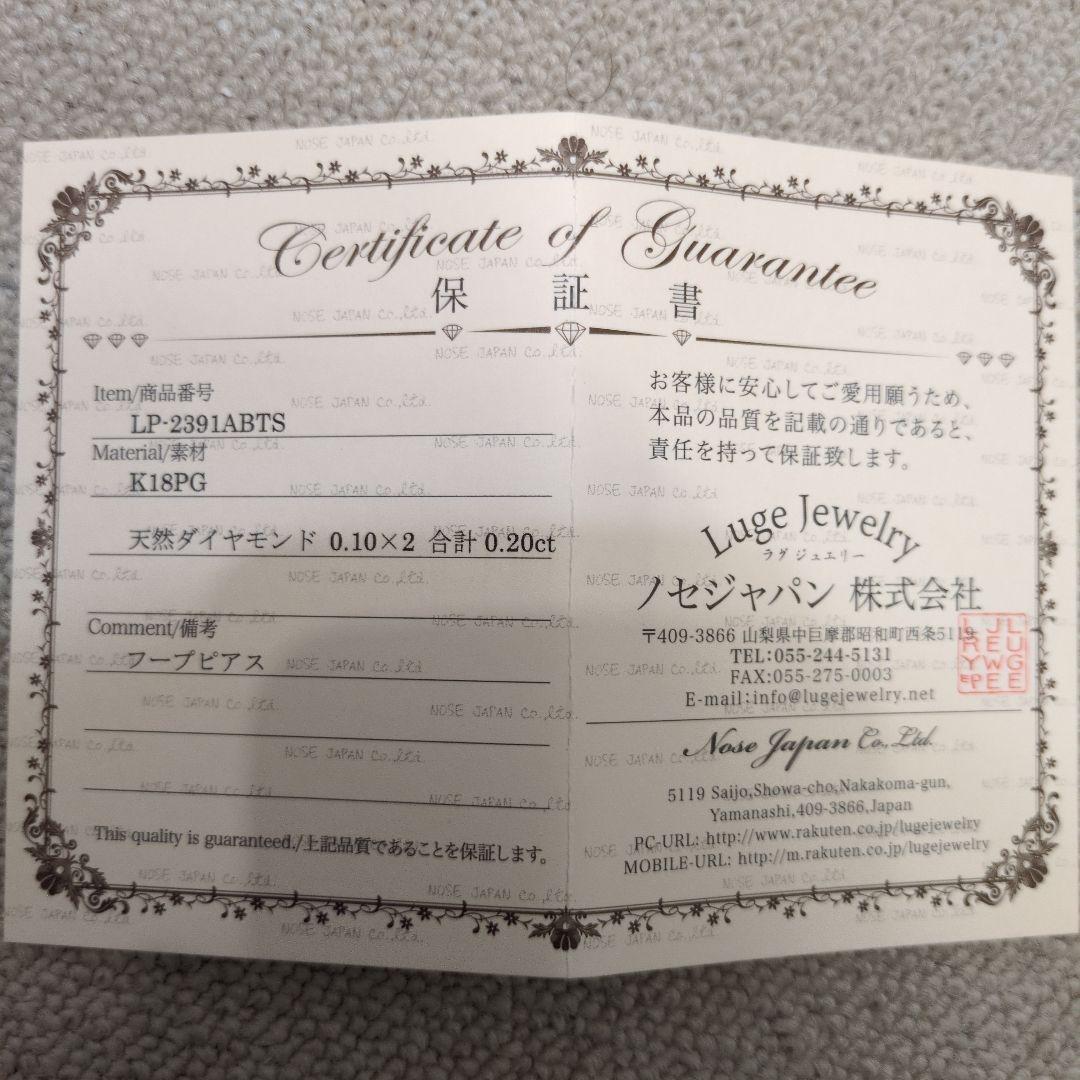 Certificate of Guarantee
保証書
Item/商品番号
LP-2391ABTS
Material/素材
K18PG
天然ダイヤモンド 0.10×2 合計 0.20ct
Comment/備考
フープピアス
This quality is guaranteed./上記品質であることを保証します。
お客様に安心してご愛用願うため、
本品の品質を記載の通りであると、
責任を持って保証致します。
Luge Jewelry
ラグ ジュエリー
ノセジャパン 株式会社
〒409-3866 山梨県中巨摩郡昭和町西条5119
TEL:055-244-5131
FAX:055-275-0003
E-mail:info@lugejewelry.net
Nose Japan Co., Ltd.
5119 Saijo,Showa-cho,Nakakoma-gun,
Yamanashi,409-3866,Japan
PC-URL: http://www.rakuten.co.jp/lugejewelry
MOBILE-URL: http://m.rakuten.co.jp/lugejewelry
NOSE JAPAN Co.,Ltd.